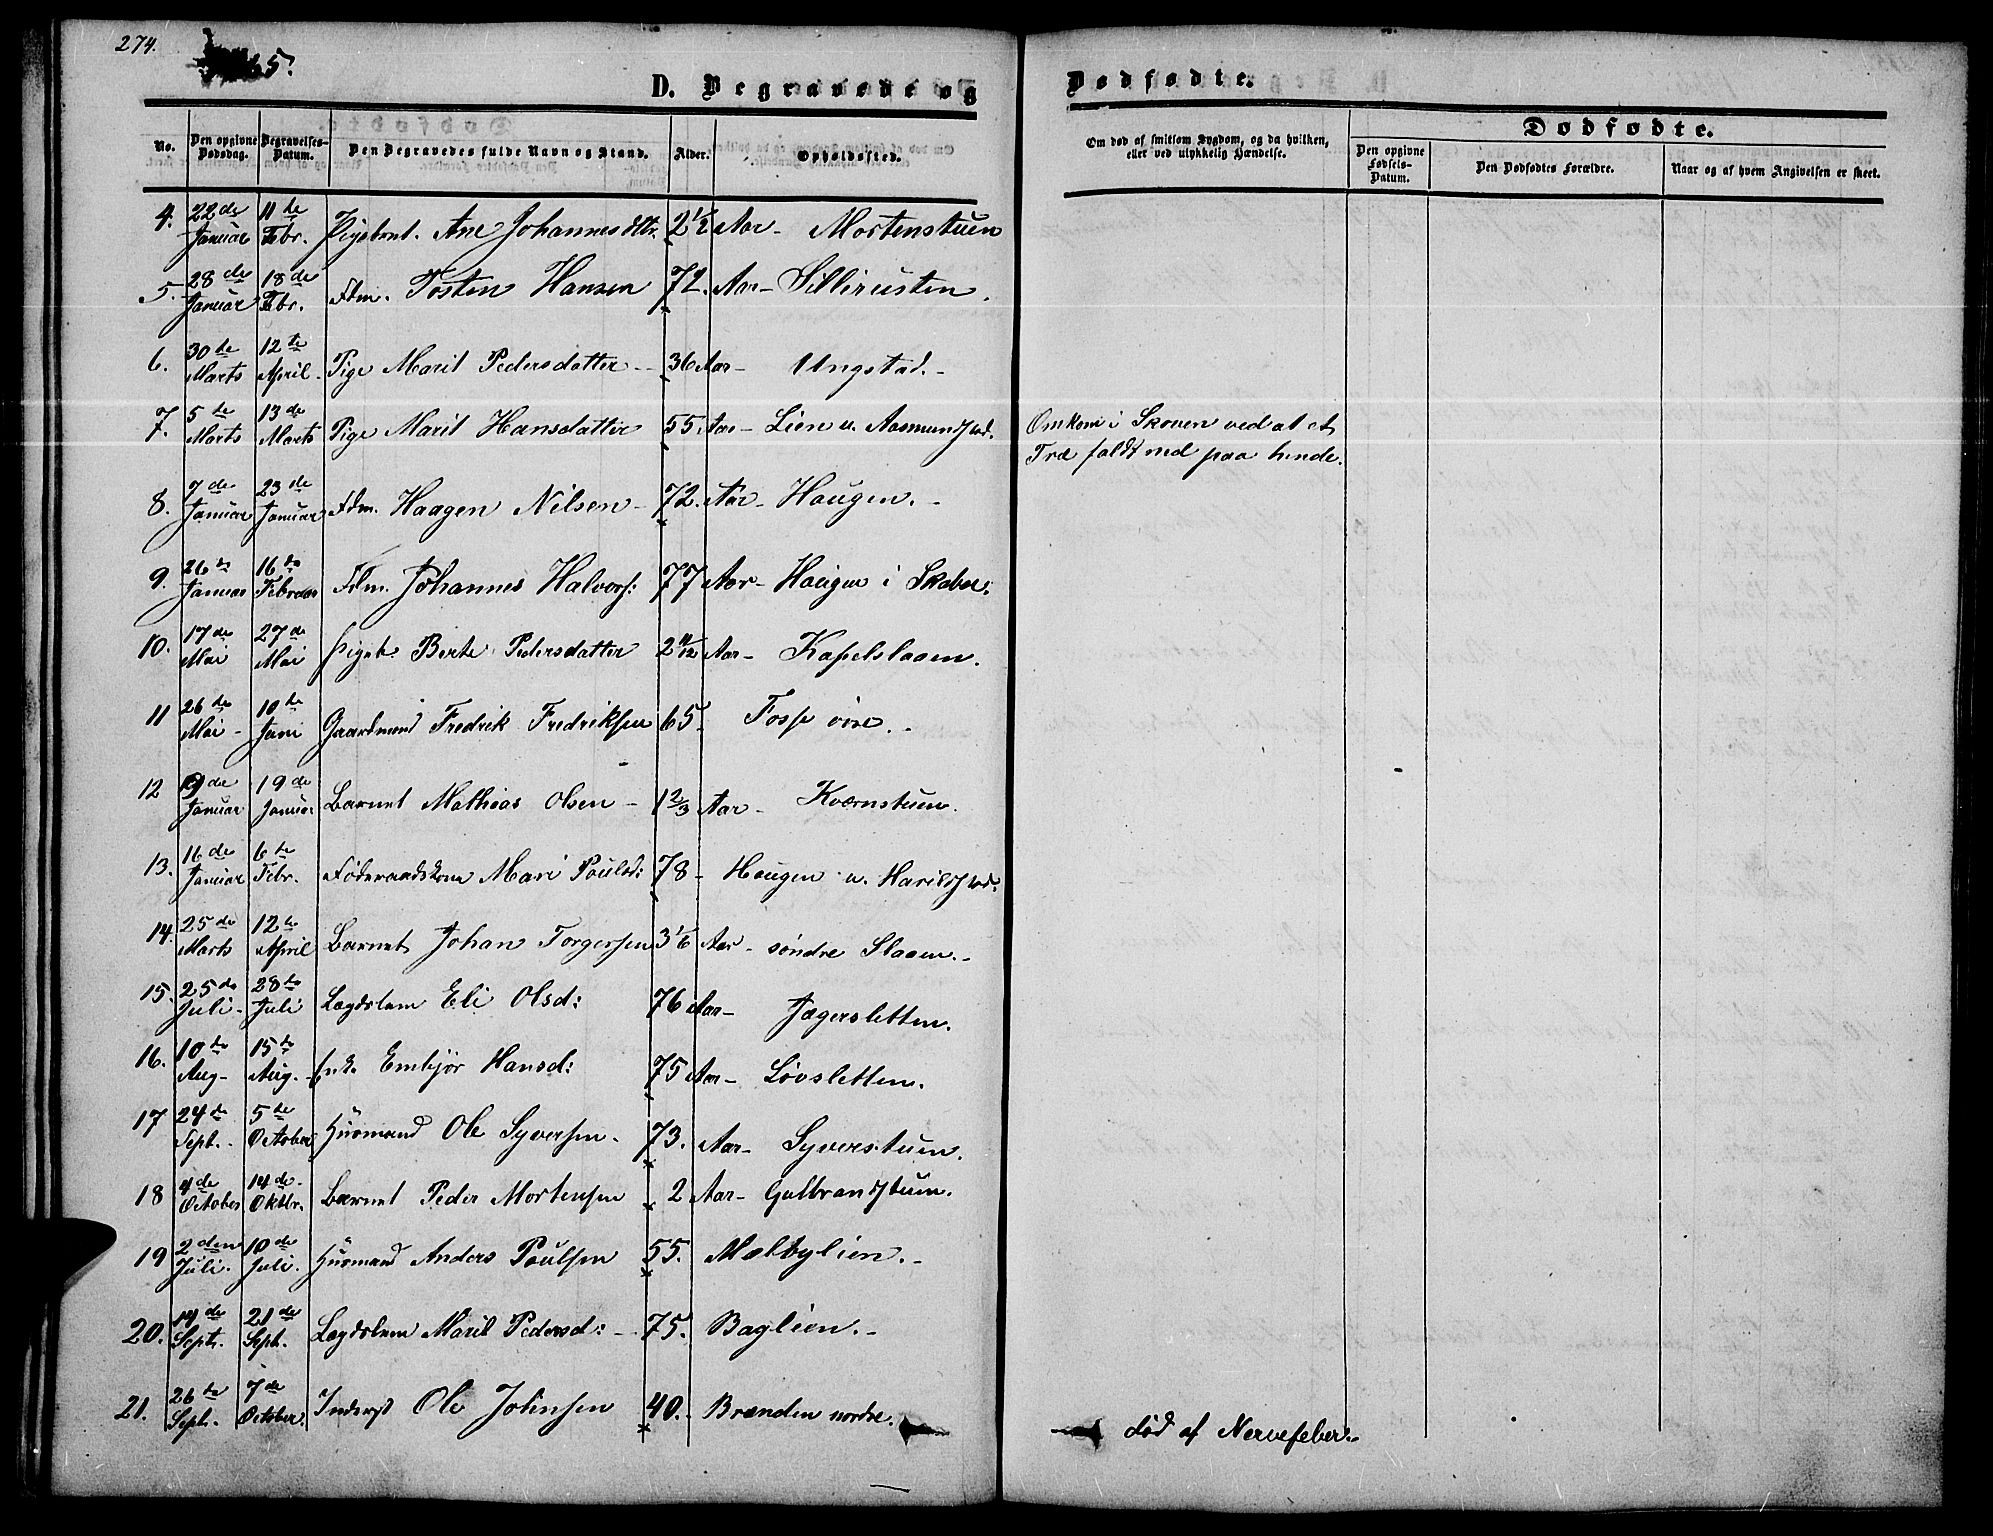 274.
65.
D. Begravede og Dødfødte.
No. Den opgivne Dødsdag. Begravelses-Datum. Den Begravedes fulde Navn og Stand. Alder. Opholdssted.
Om død af smitsom Sygdom, og da hvilken, eller ved ulykkelig Hændelse.
Dødfødte.
Den opgivne Fødsels-Datum. Den Dødfødtes Forældre. Naar og af hvem Angivelsen er skeet.
4. 22de Januar 11te Febr. Pigebnt. Ane Johannesdtr. 2 1/2 Aar- Mortenstuen
5. 28de Januar 18de Febr. Fdm. Tosten Hansen 72. Aar- Sillirusten.
6. 30te Marts 12te April- Pige Marit Pedersdatter - 36 Aar- Ungstad.-
7. 5te Marts 13de Marts Pige Marit Hansdatter 55. Aar- Lien u. Aasmundstad. Omkom i Skoven ved at et
Træ faldt ned paa hende.
8. 7de Januar 23de Januar Fdm. Haagen Nilsen- 72. Aar- Haugen.-
9. 26de Januar 16de Februar Fdm. Johannes Halvors: 77 Aar- Haugen i Skabu:
10. 17de Mai 27de Mai Pigeb. Berte Pedersdatter 2 11/12 Aar- Kapelslaaen.
11 26de Mai- 10te Juni Gaardmand Fredrik Fredriksen 65- Fosse øvre.-
12 9de Januar 19de Januar Barnet Mathias Olsen- 1 2/3 Aar- Kværnstuen.
13. 16de Januar 6te Febr. Føderaadskone Mari Poulsd: 78- Haugen u. Harildstad.
14. 25de Marts 12te April Barnet Johan Torgersen 3 1/6 Aar- søndre Slaaen.-
15. 25de Juli- 28de Juli Lægdslem Eli Olsd: 76 Aar- Jægersletten.
16. 10de Aug- 15te Aug.- Enke Embjør Hansd: 75 Aar- Løvsletten.
17 24de Sept.- 5te October Husmand Ole Syversen- 73. Aar- Syverstuen.
18 4de October 14de- Oktbr. Barnet Peder Mortensen 2 Aar- Gulbrandstuen.
19 2den Juli. 10de Juli. Husmand Anders Poulsen 55. Mælbylien.-
20. 14de Sept. 21de Sept. Lægdslem Marit Pedersd:- 75. Baglien.-
21. 26de Sept. 7de October Inderst Ole Johnsen 40.- Brænden nordre. død af Nervefeber.-